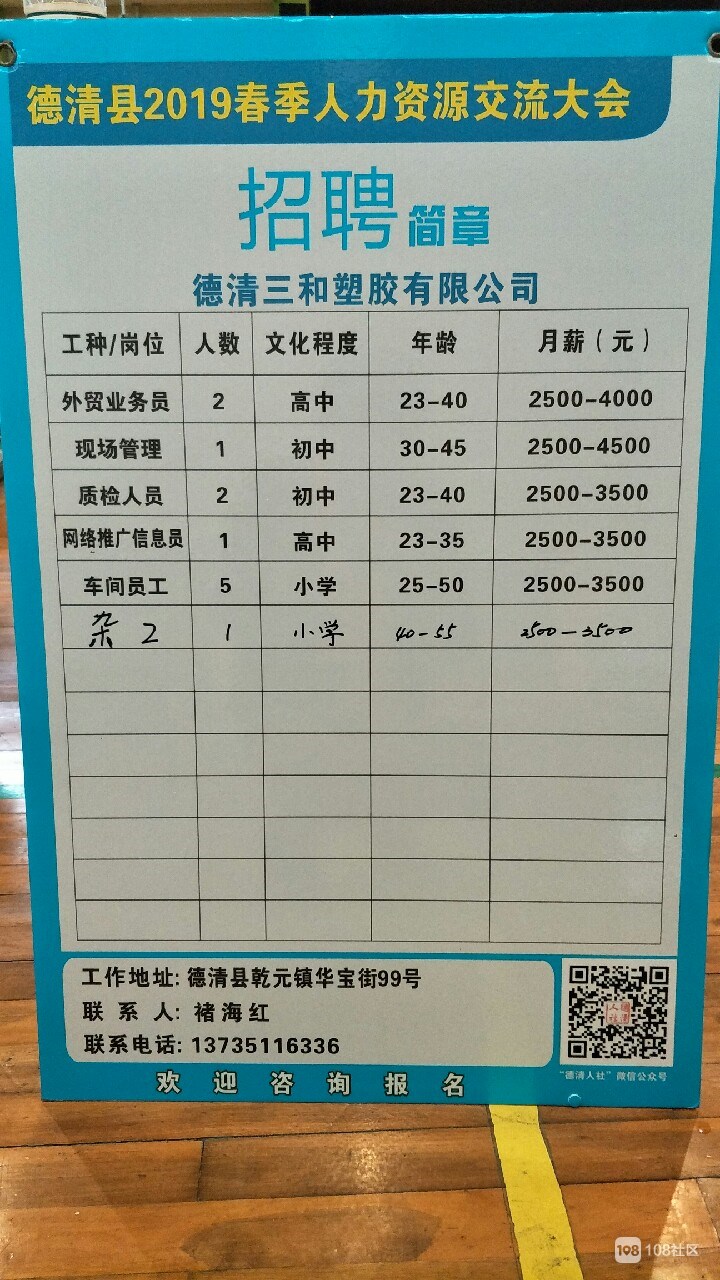 德清县2019春季人力资源交流大会
招聘简章
德清三和塑胶有限公司
工种/岗位 人数 文化程度 年龄 月薪（元）
外贸业务员 2 高中 23-40 2500-4000
现场管理 1 初中 30-45 2500-4500
质检人员 2 初中 23-40 2500-3500
网络推广信息员 1 高中 23-35 2500-3500
车间员工 5 小学 25-50 2500-3500
杂工 1 小学 40-55 2500-3500
工作地址: 德清县乾元镇华宝街99号
联系人: 褚海红
联系电话: 13735116336
"德清人社"微信公众号
欢迎咨询报名
108社区